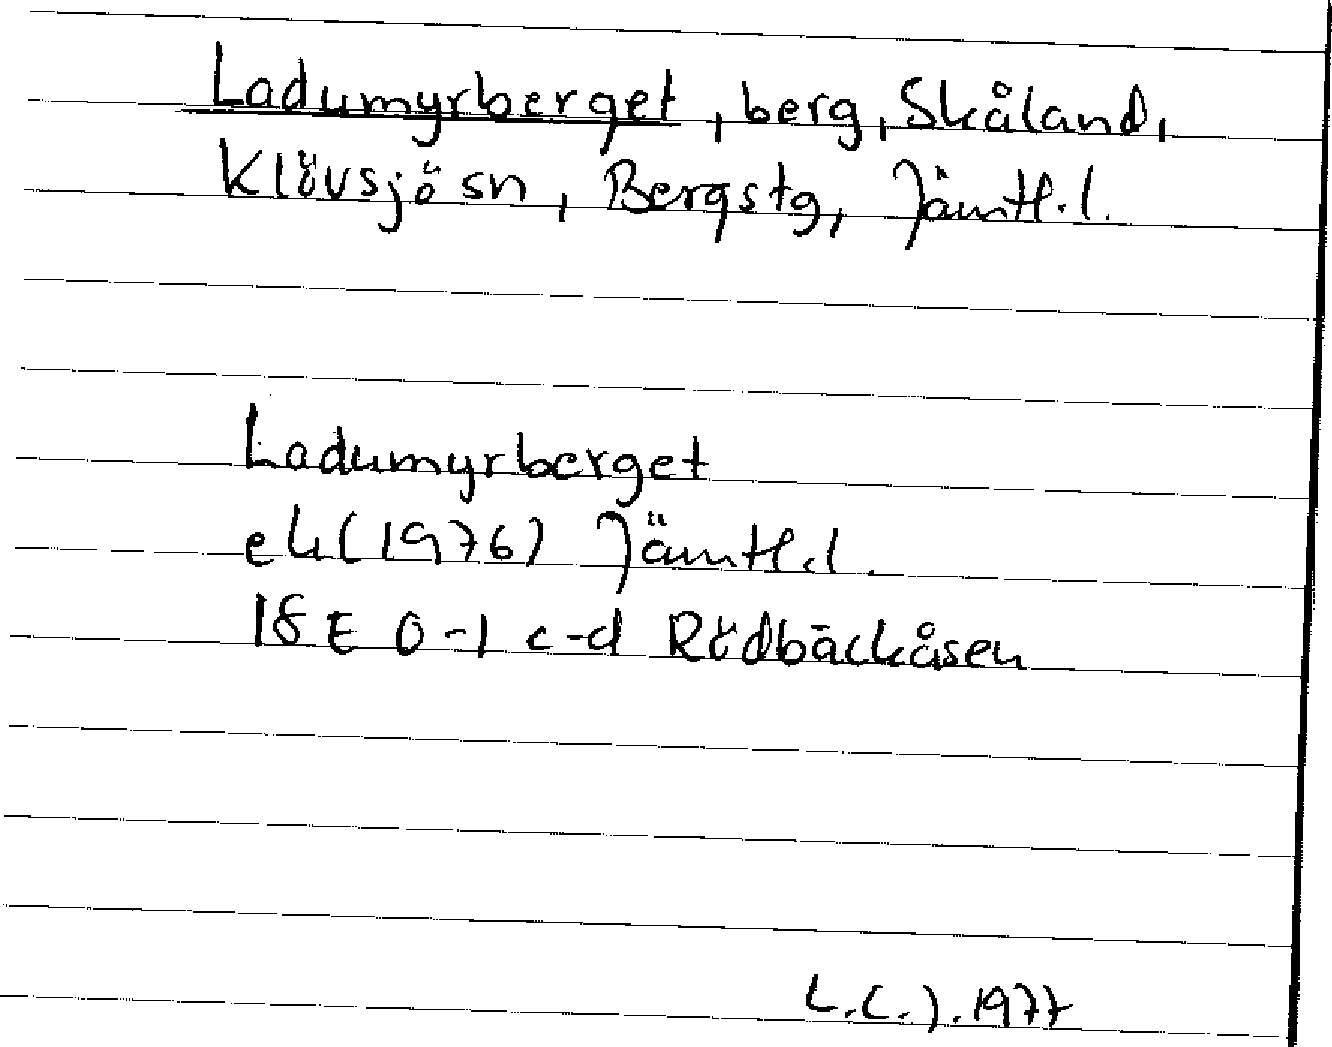 Ladumyrberget, berg, Skåland,
Klövsjö sn, Bergstg, Jämtl.l.
Ladumyrberget
ek (1976) Jämtl.l.
18E 0-1 c-d Rödbäckåsen
L.C.J. 1977